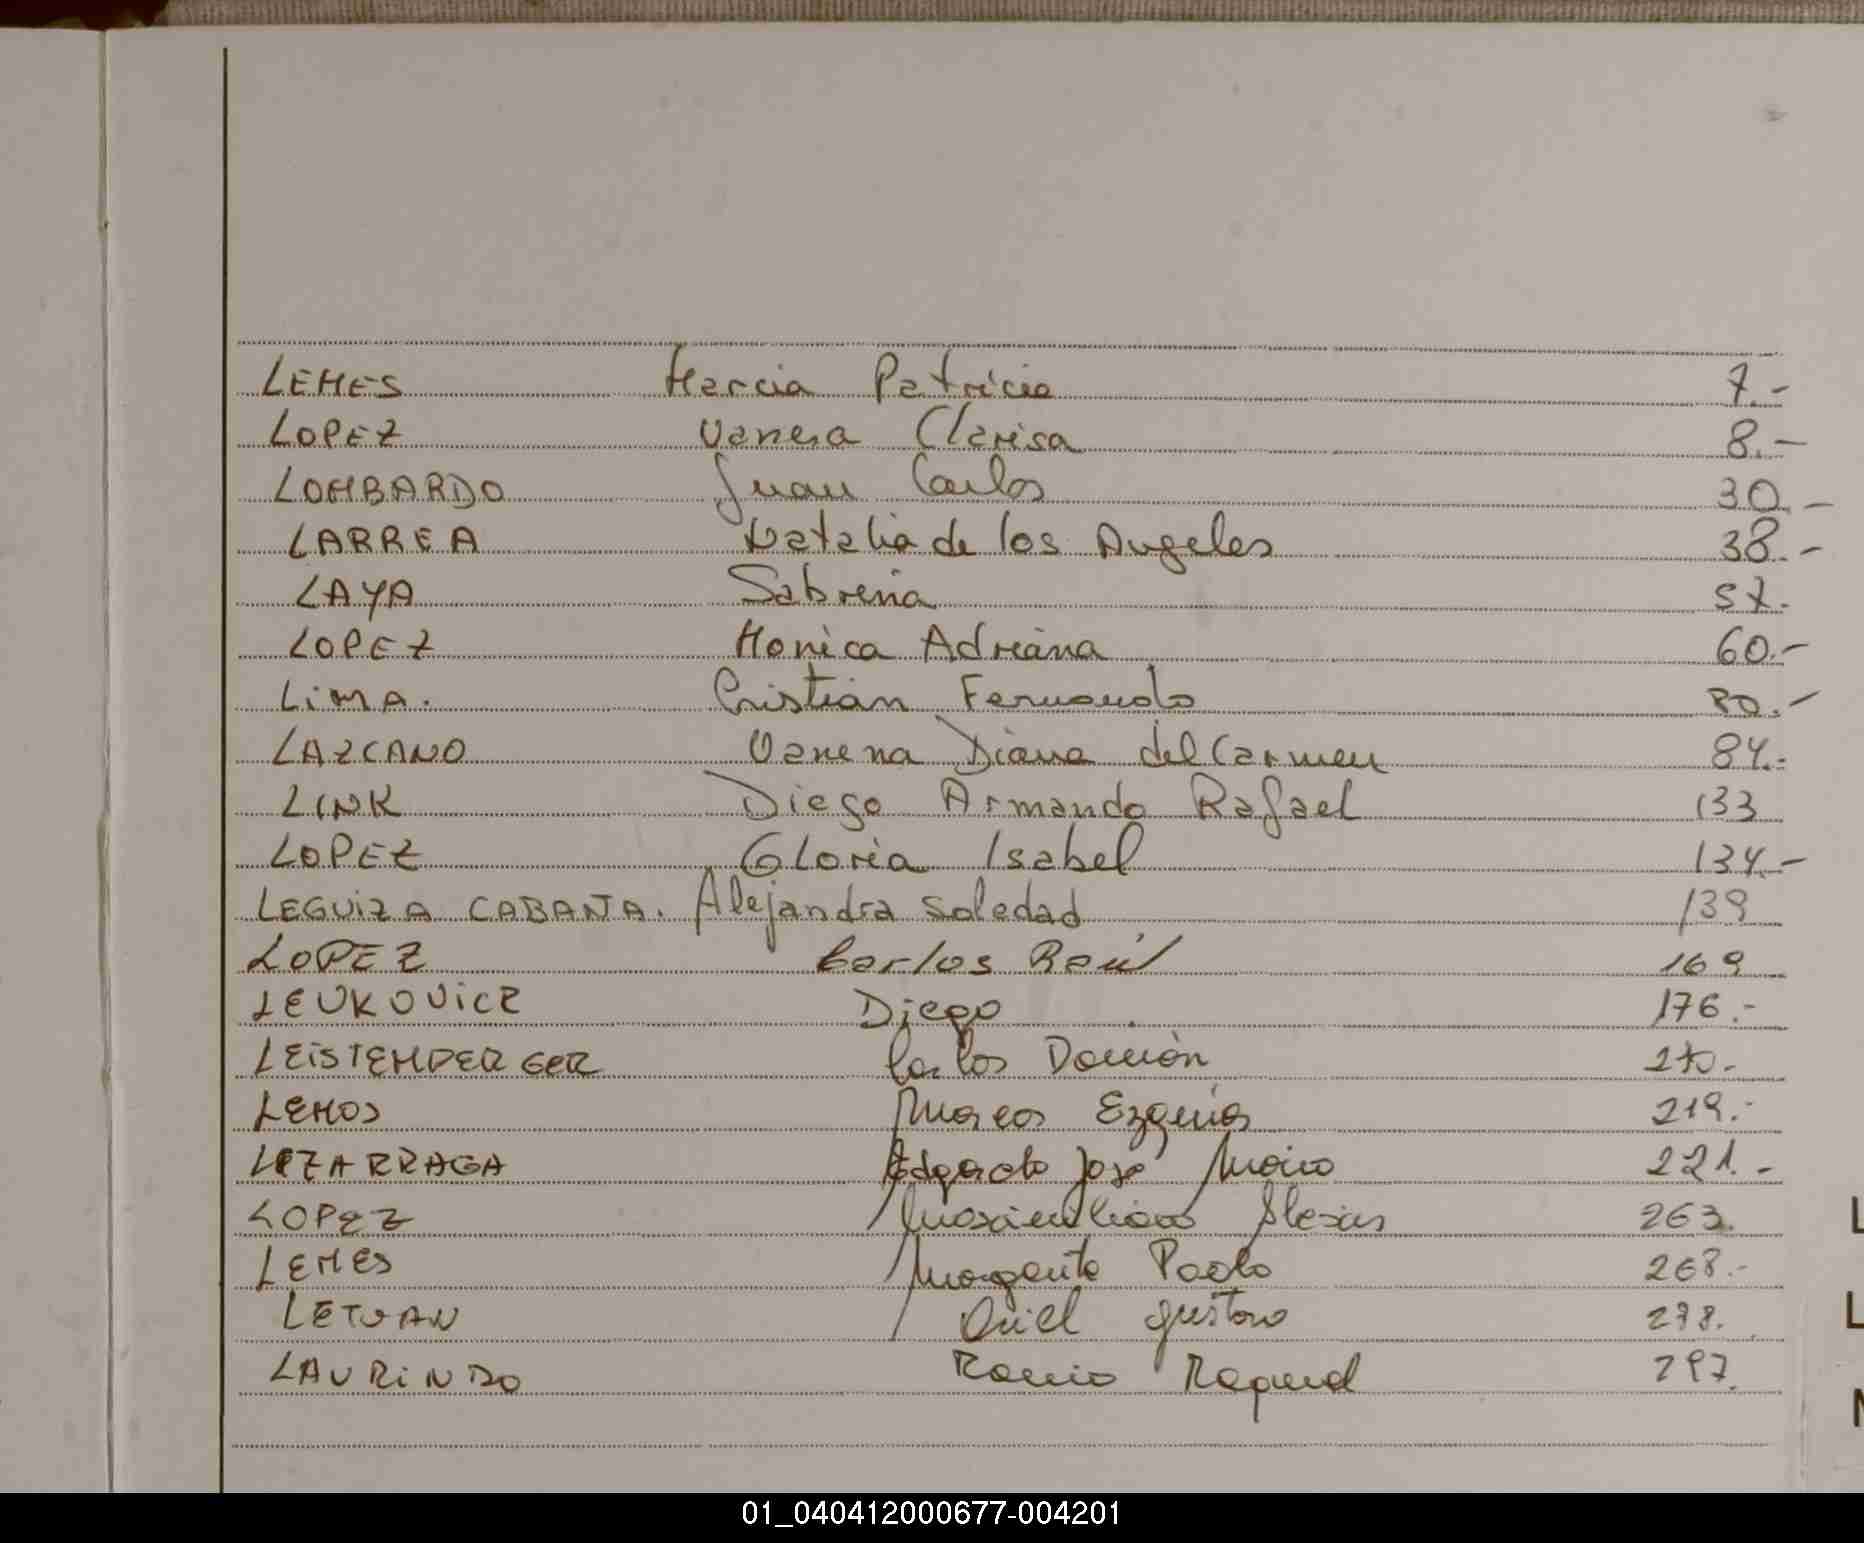 LEMES Marcia Patricia 7.-
LOPEZ Vanesa Clarisa 8.-
LOMBARDO Juan Carlos 30.-
LARREA Natalia de los Angeles 38.-
LAYA Sabrina 57.
LOPEZ Monica Adriana 60.-
LiMA. Cristian Fernando 80.-
LAZCANO Vanena Diana del Carmen 84.-
LINK Diego Armando Rafael 133
LOPEZ Gloria Isabel 134.-
LEGUiZA CABAÑA. Alejandra Soledad 139
LOPEZ Carlos Raúl 169
LEUKOViCZ Diego 176.-
LEiSTEMDERGER Carlos Damián 210.-
LEMOS Marcos Ezequias 219.-
LIZARRAGA Edgardo José Mario 221.-
LOPEZ Maximiliano Alexis 263.
LEMES Margarita Paola 268.-
LETVAN Oriel Gustavo 278.
LAURiNDO Rocio Raquel 297.
L
L
01_040412000677-004201